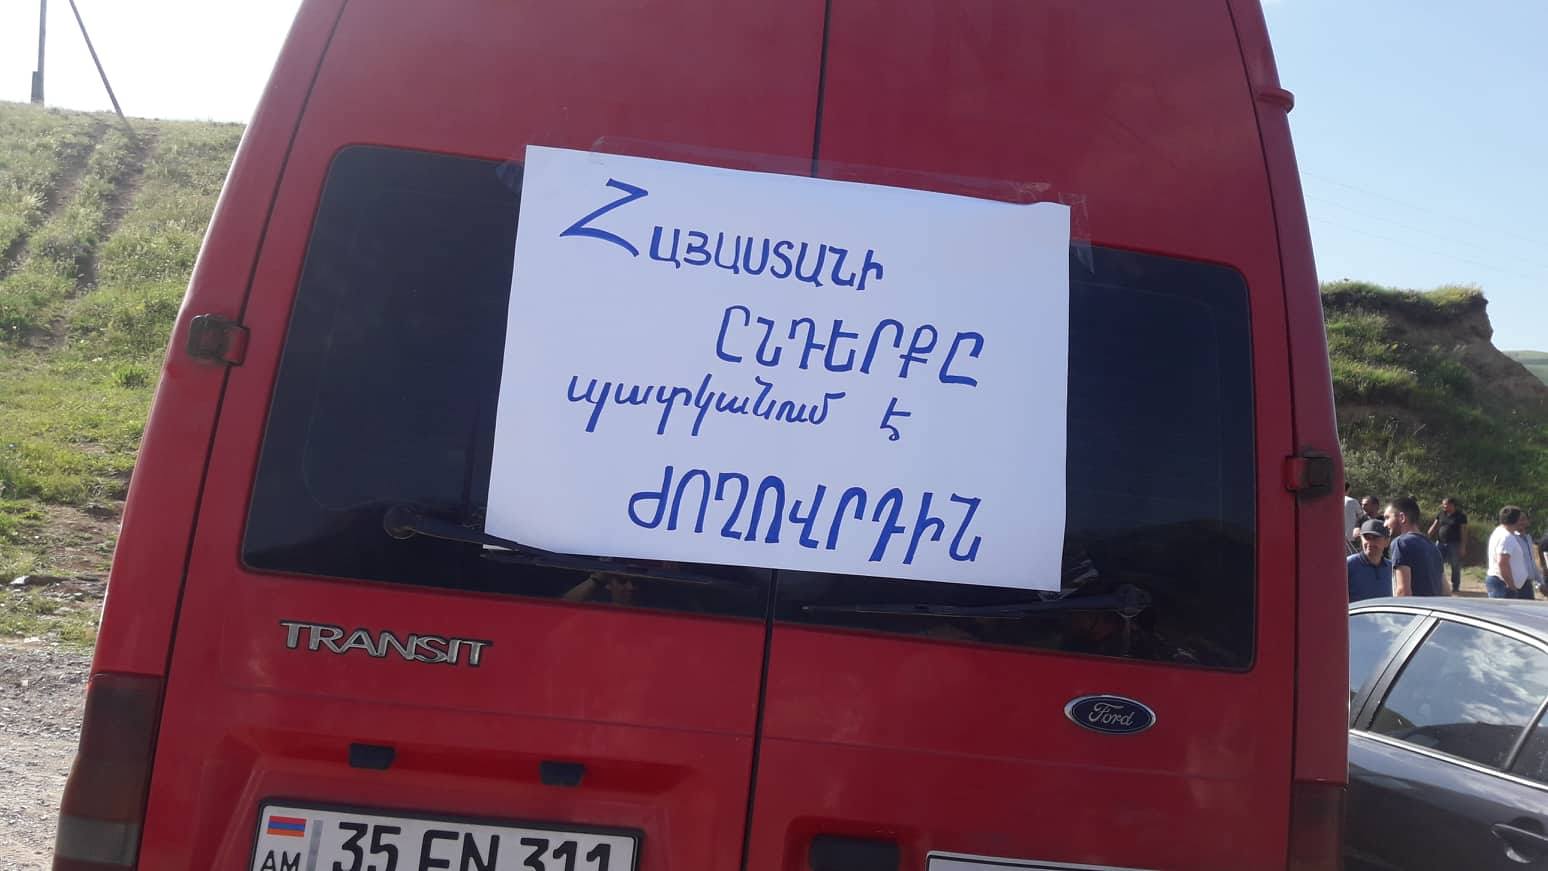 ՀԱՅԱՍՏԱՆԻ
ԸՆԴԵՐՔԸ
պատկանում է
ԺՈՂՈՎՐԴԻՆ
TRANSIT
Ford
AM 35 EN 311